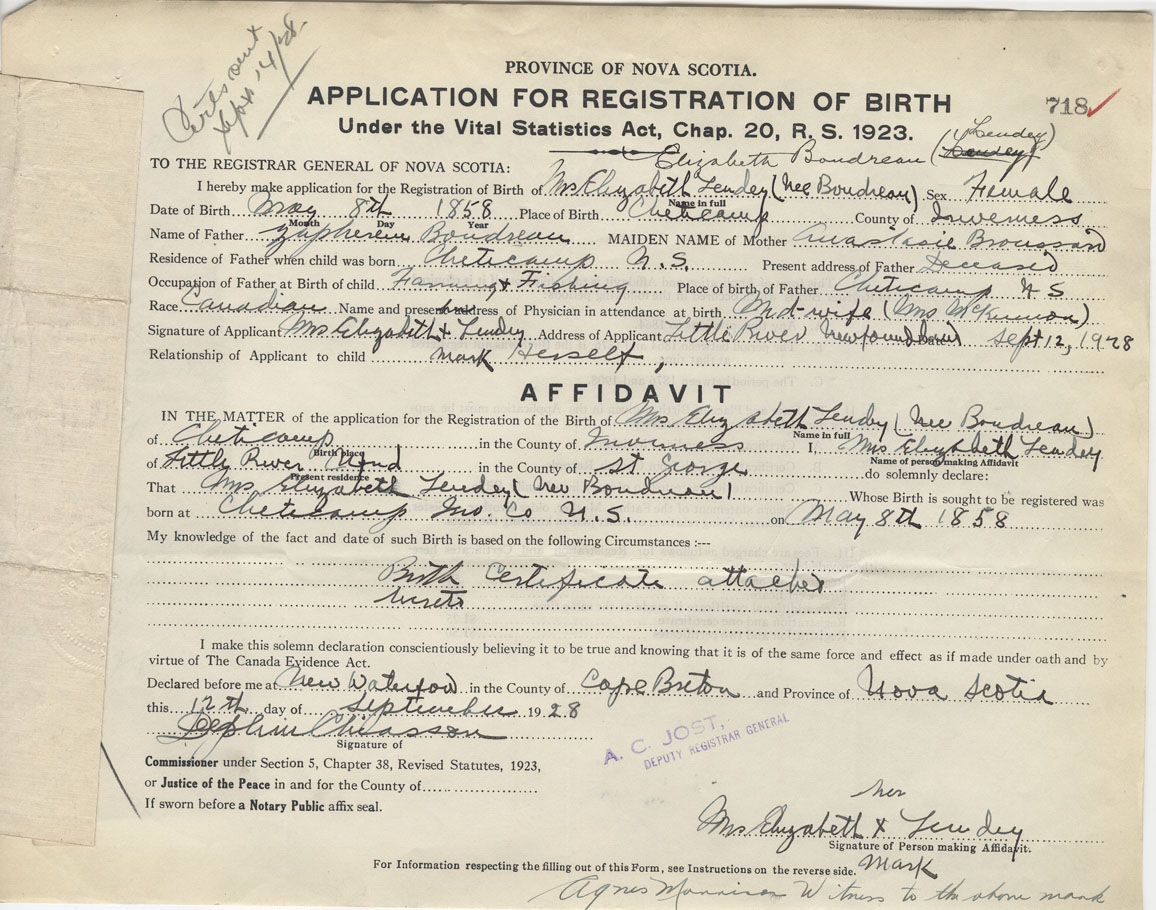 Certs sent
Sept 14/28.
PROVINCE OF NOVA SCOTIA.
APPLICATION FOR REGISTRATION OF BIRTH
718
Under the Vital Statistics Act, Chap. 20, R. S. 1923.
(Lendey)
Elizabeth Boudreau (Lendey)
TO THE REGISTRAR GENERAL OF NOVA SCOTIA:
I hereby make application for the Registration of Birth of Mrs Elizabeth Lendey (nee Boudreau) Sex Female
Name in full
Date of Birth May 8th 1858 Place of Birth Cheticamp County of Inverness
Month Day Year
Name of Father Zapherein Boudreau MAIDEN NAME of Mother Anastasie Broussard
Residence of Father when child was born Cheticamp N.S. Present address of Father Deceased
Occupation of Father at Birth of child Farming & Fishing Place of birth of Father Cheticamp N S
Race Canadian Name and present address of Physician in attendance at birth Mid-wife (Mrs McKinnon)
Signature of Applicant Mrs Elizabeth X Lendey Address of Applicant Little River Newfoundland Sept 12, 1928
her
Relationship of Applicant to child mark Herself,
AFFIDAVIT
IN THE MATTER of the application for the Registration of the Birth of Mrs Elizabeth Lendey (nee Boudreau)
Name in full
of Cheticamp in the County of Inverness I, Mrs Elizabeth Lendey
Birth place Name of person making Affidavit
of Little River Nfnd in the County of St George do solemnly declare:
Present residence
That Mrs Elizabeth Lendey (nee Boudreau) Whose Birth is sought to be registered was
born at Cheticamp Inv. Co N.S. on May 8th 1858
My knowledge of the fact and date of such Birth is based on the following Circumstances :---
Birth Certificate attached
hereto
I make this solemn declaration conscientiously believing it to be true and knowing that it is of the same force and effect as if made under oath and by
virtue of The Canada Evidence Act.
Declared before me at New Waterford in the County of Cape Breton and Province of Nova Scotia
this 12th day of September 1928
Chiasson
Signature of
A. C. JOST,
DEPUTY REGISTRAR GENERAL
Commissioner under Section 5, Chapter 38, Revised Statutes, 1923,
or Justice of the Peace in and for the County of
If sworn before a Notary Public affix seal.
her
Mrs Elizabeth X Lendey
Signature of Person making Affidavit.
Mark
For Information respecting the filling out of this Form, see Instructions on the reverse side.
Agnes Morrison Witness to the above mark